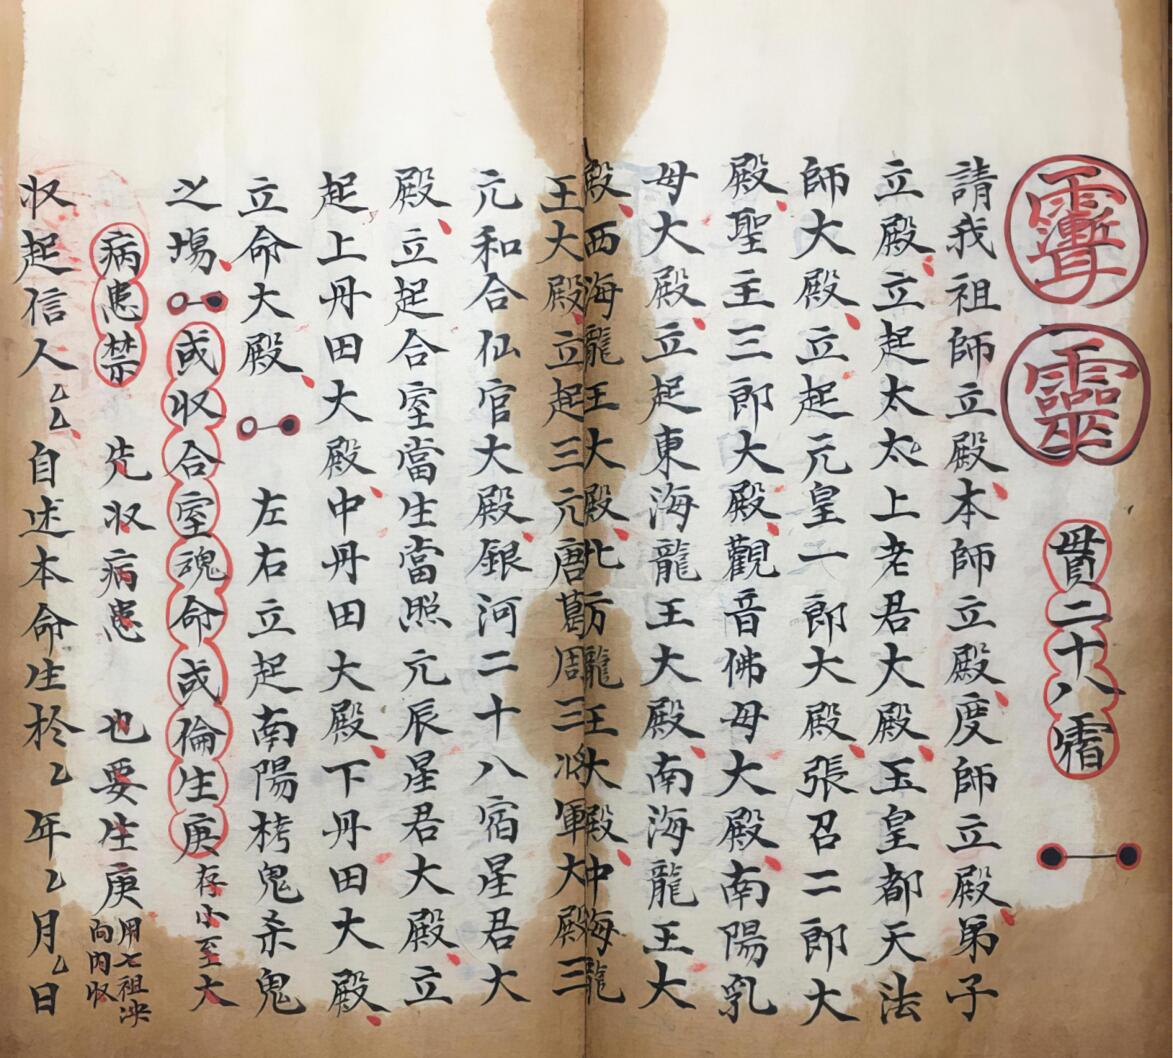 貫二十八宿
請我祖師立殿本師立殿度師立殿弟子
立殿立起太太上老君大殿玉皇都天法
師大殿立起元皇一郎大殿張召二郎大
殿聖主三郎大殿觀音佛母大殿南陽乳
母大殿立起東海龍王大殿南海龍王大
殿西海龍王大殿北海龍王大殿中海龍
王大殿立起三元唐葛周三将軍大殿三
元和合仙官大殿銀河二十八宿星君大
殿立起合室當生當照元辰星君大殿立
起上丹田大殿中丹田大殿下丹田大殿
立命大殿 左右立起南陽栲鬼杀鬼
之場 或收合室魂命或倫生庚存小至大
病患禁 先收病患 也要生庚用七祖决向内收
收起信人乙乙自述本命生於乙年乙月乙日